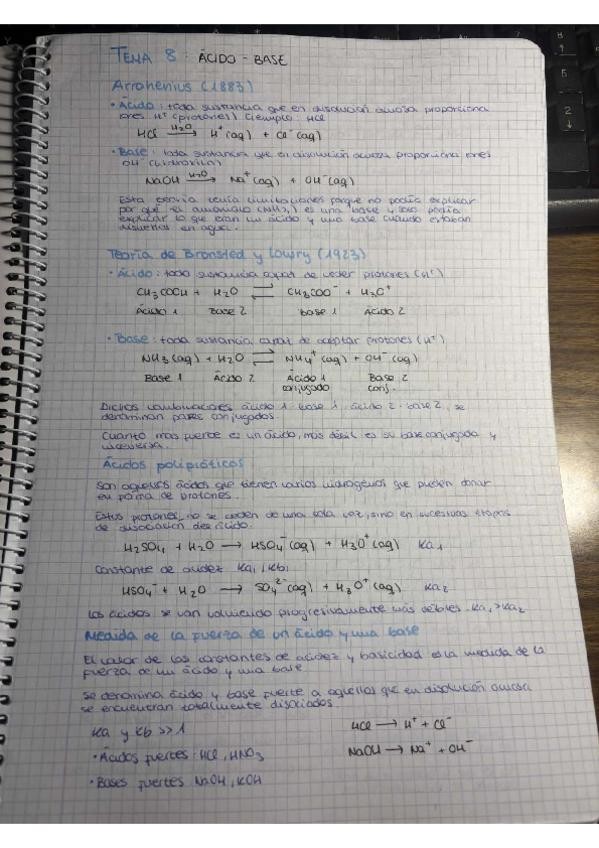 TEMA 8: ÁCIDO - BASE
Arrohenius (1883)
• Ácido: toda sustancia que en disolución acuosa proporciona
iones H⁺ (protones) Ejemplo: HCl
HCl —H₂O→ H⁺(aq) + Cl⁻(aq)
• Base: toda sustancia que en disolución acuosa proporciona iones
OH⁻ (hidroxilo)
NaOH —H₂O→ Na⁺(aq) + OH⁻(aq)
Esta teoría tenía limitaciones porque no podía explicar
por qué el amoníaco (NH₃) es una base y solo podía
explicar lo que eran un ácido y una base cuando estaban
disueltos en agua.
Teoría de Bronsted y Lowry (1923)
• Ácido: toda sustancia capaz de ceder protones (H⁺)
CH₃COOH + H₂O ⇌ CH₃COO⁻ + H₃O⁺
Ácido 1 Base 2 base 1 Ácido 2
• Base: toda sustancia capaz de aceptar protones (H⁺)
NH₃(aq) + H₂O ⇌ NH₄⁺(aq) + OH⁻(aq)
Base 1 Ácido 2 Ácido 1 Base 2
conjugado conj.
Dichas combinaciones ácido 1 - base 1, ácido 2 - base 2, se
denominan pares conjugados.
Cuanto más fuerte es un ácido, más débil es su base conjugada y
viceversa.
Ácidos polipróticos
Son aquellos ácidos que tienen varios hidrógenos que pueden donar
en forma de protones.
Estos protones, no se ceden de una sola vez, sino en sucesivas etapas
de disociación del ácido.
H₂SO₄ + H₂O → HSO₄⁻(aq) + H₃O⁺(aq) Ka₁
Constante de acidez Ka₁, Kb₁
HSO₄⁻ + H₂O → SO₄²⁻(aq) + H₃O⁺(aq) Ka₂
Los ácidos se van volviendo progresivamente más débiles. Ka₁ > Ka₂
Medida de la fuerza de un ácido y una base
El valor de las constantes de acidez y basicidad es la medida de la
fuerza de un ácido y una base.
Se denomina ácido y base fuerte a aquellos que en disolución acuosa
se encuentran totalmente disociados.
Ka y Kb >> 1 HCl → H⁺ + Cl⁻
• Ácidos fuertes: HCl, HNO₃ NaOH → Na⁺ + OH⁻
• Bases fuertes NaOH, KOH